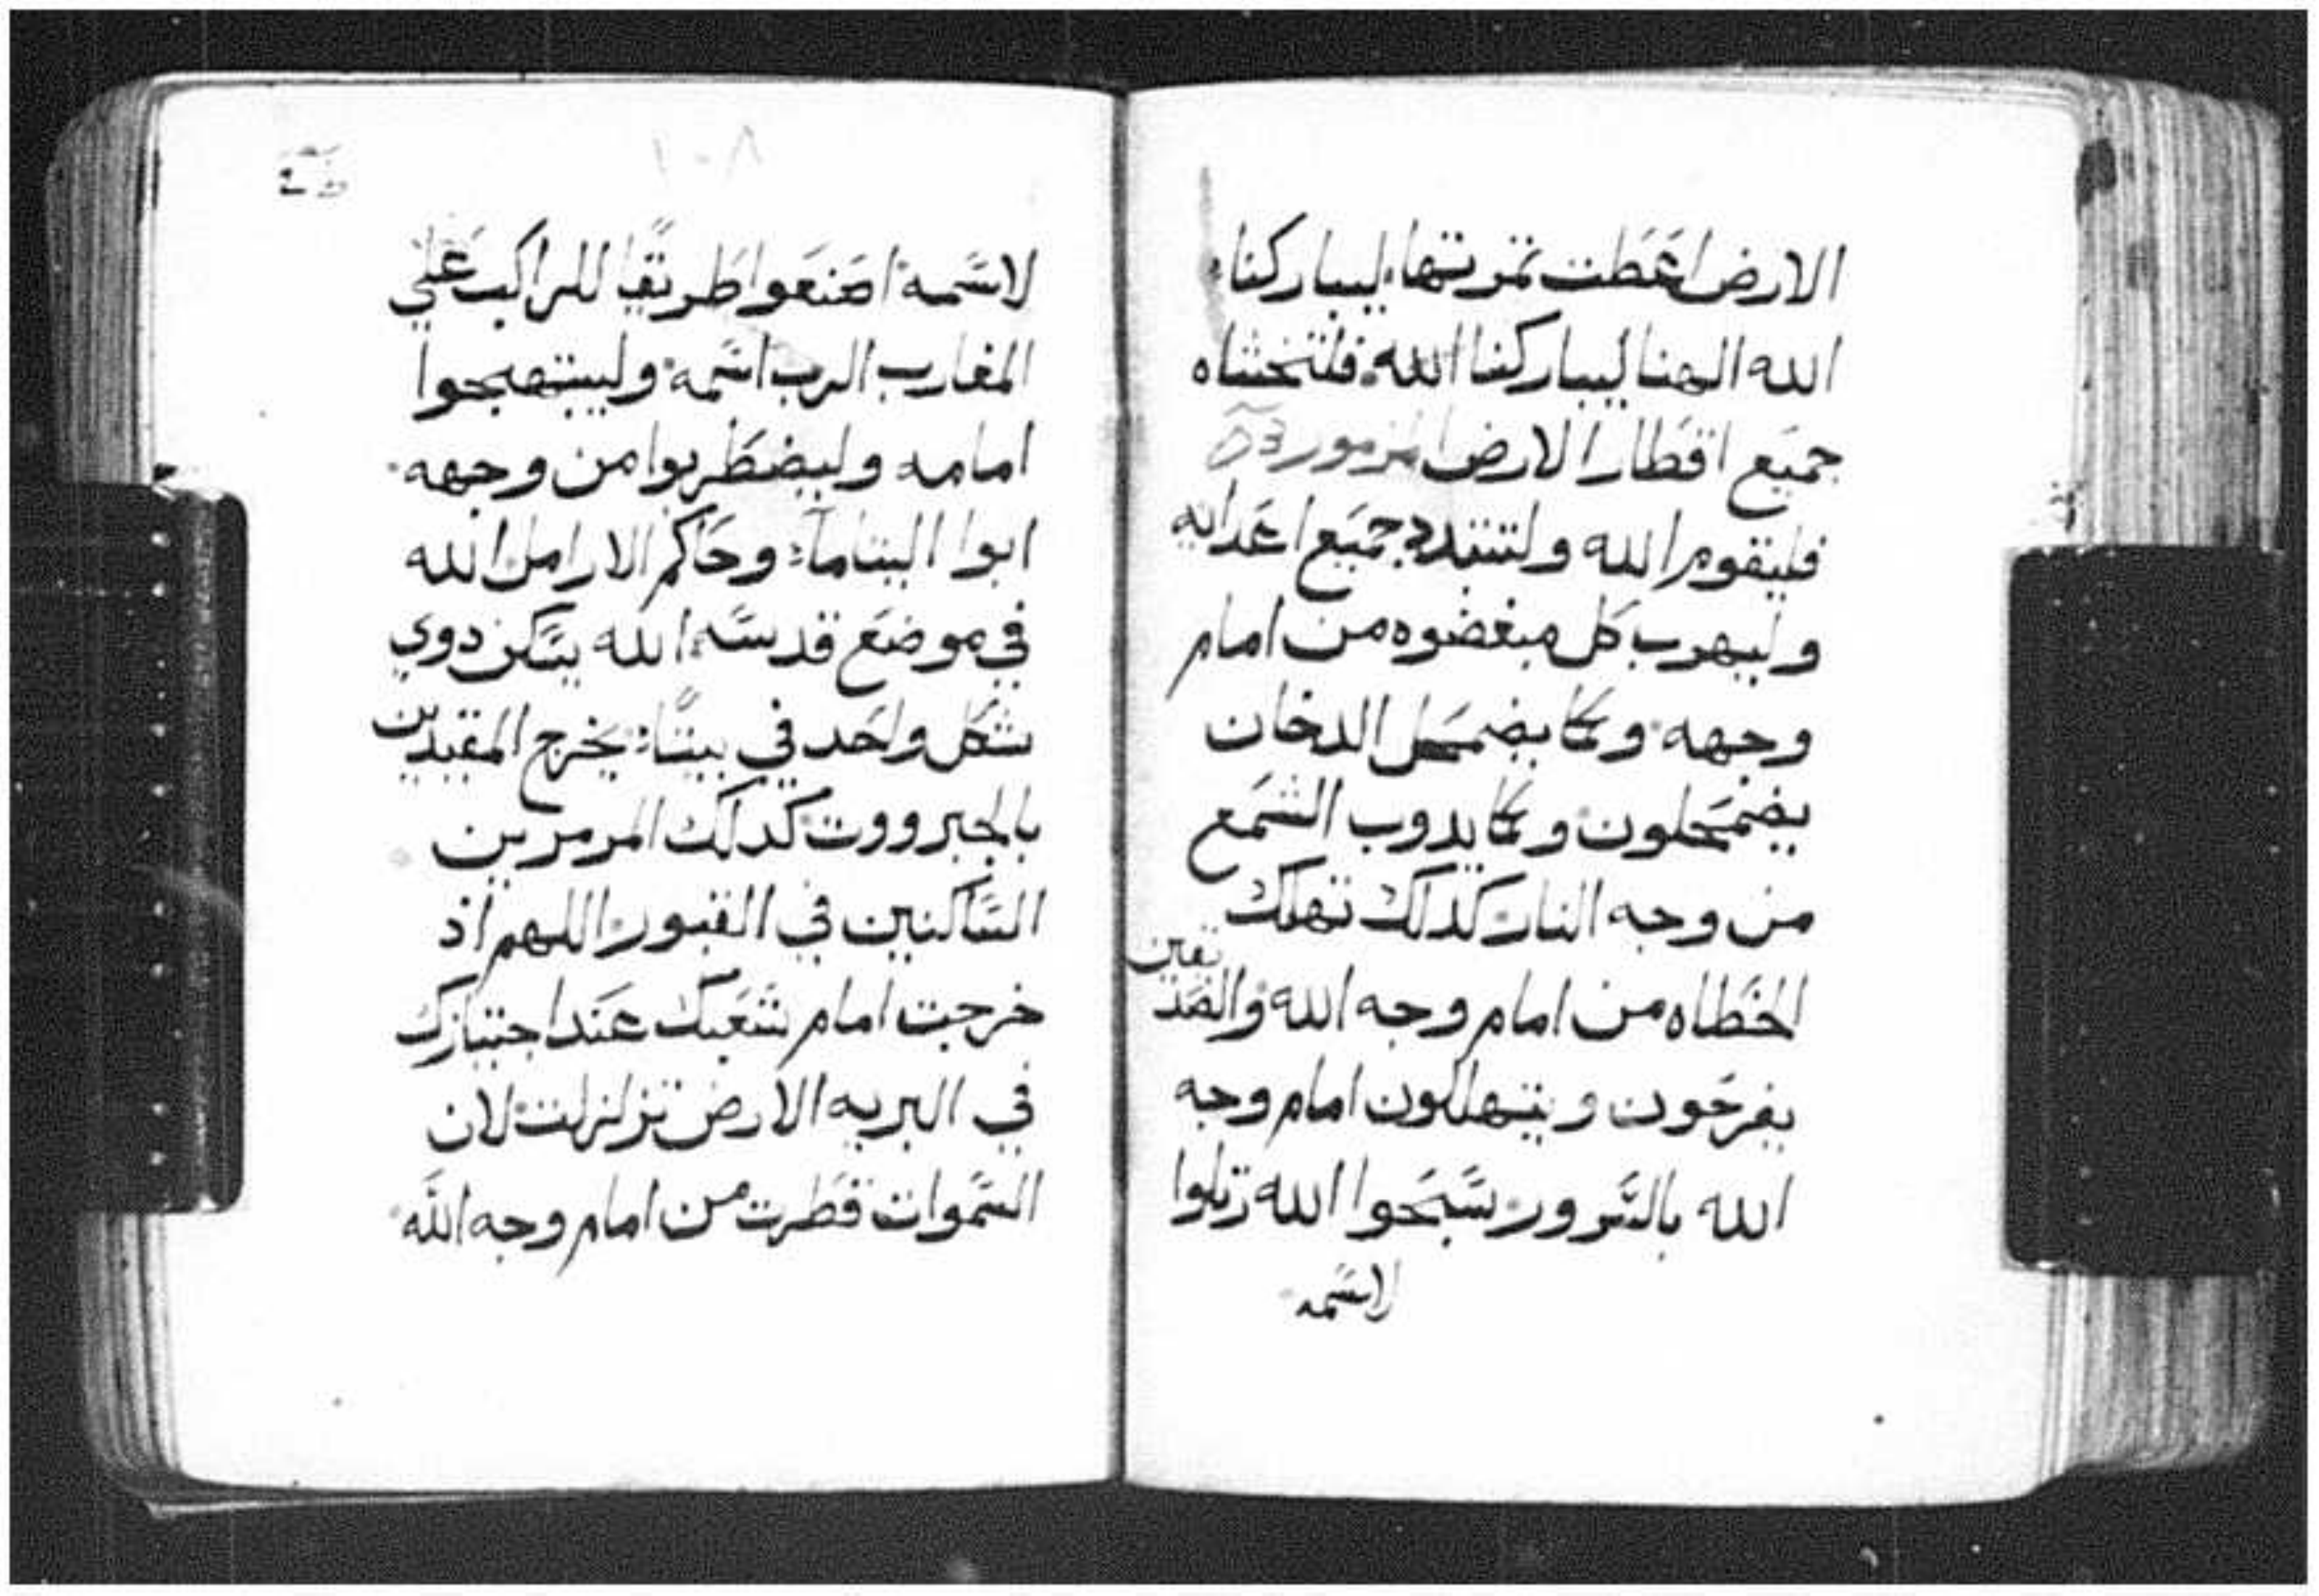 الارض اعطت تمرتها ليباركنا
الله الهنا ليباركنا الله فلتخشاه
جميع اقطار الارض مزمور
فليقوم الله ولتتبدد جميع اعدايه
وليهرب كل مبغضوه من امام
وجهه وكما يضمحل الدخان
يضمحلون وكما يدوب الشمع
من وجه النار كدلك تهلك
الخطاه من امام وجه الله والصديقين
يفرحون ويتهللون امام وجه
الله بالسرور سبحوا الله رتلوا
لاسمه
١٠٨
لاسمه اصنعوا طريقا للراكب علي
المغارب الرب اسمه وليبتهجوا
امامه وليضطربوا من وجهه
ابوا اليتاما وحاكم الارامل الله
في موضع قدسه الله يسكن دوي
شكل واحد في بيتا يخرج المقيدين
بالجبرووت كدلك المرمرين
الساكنين في القبور اللهم اذ
خرجت امام شعبك عند اجتيازك
في البريه الارض تزلزلت لان
السموات قطرت من امام وجه الله